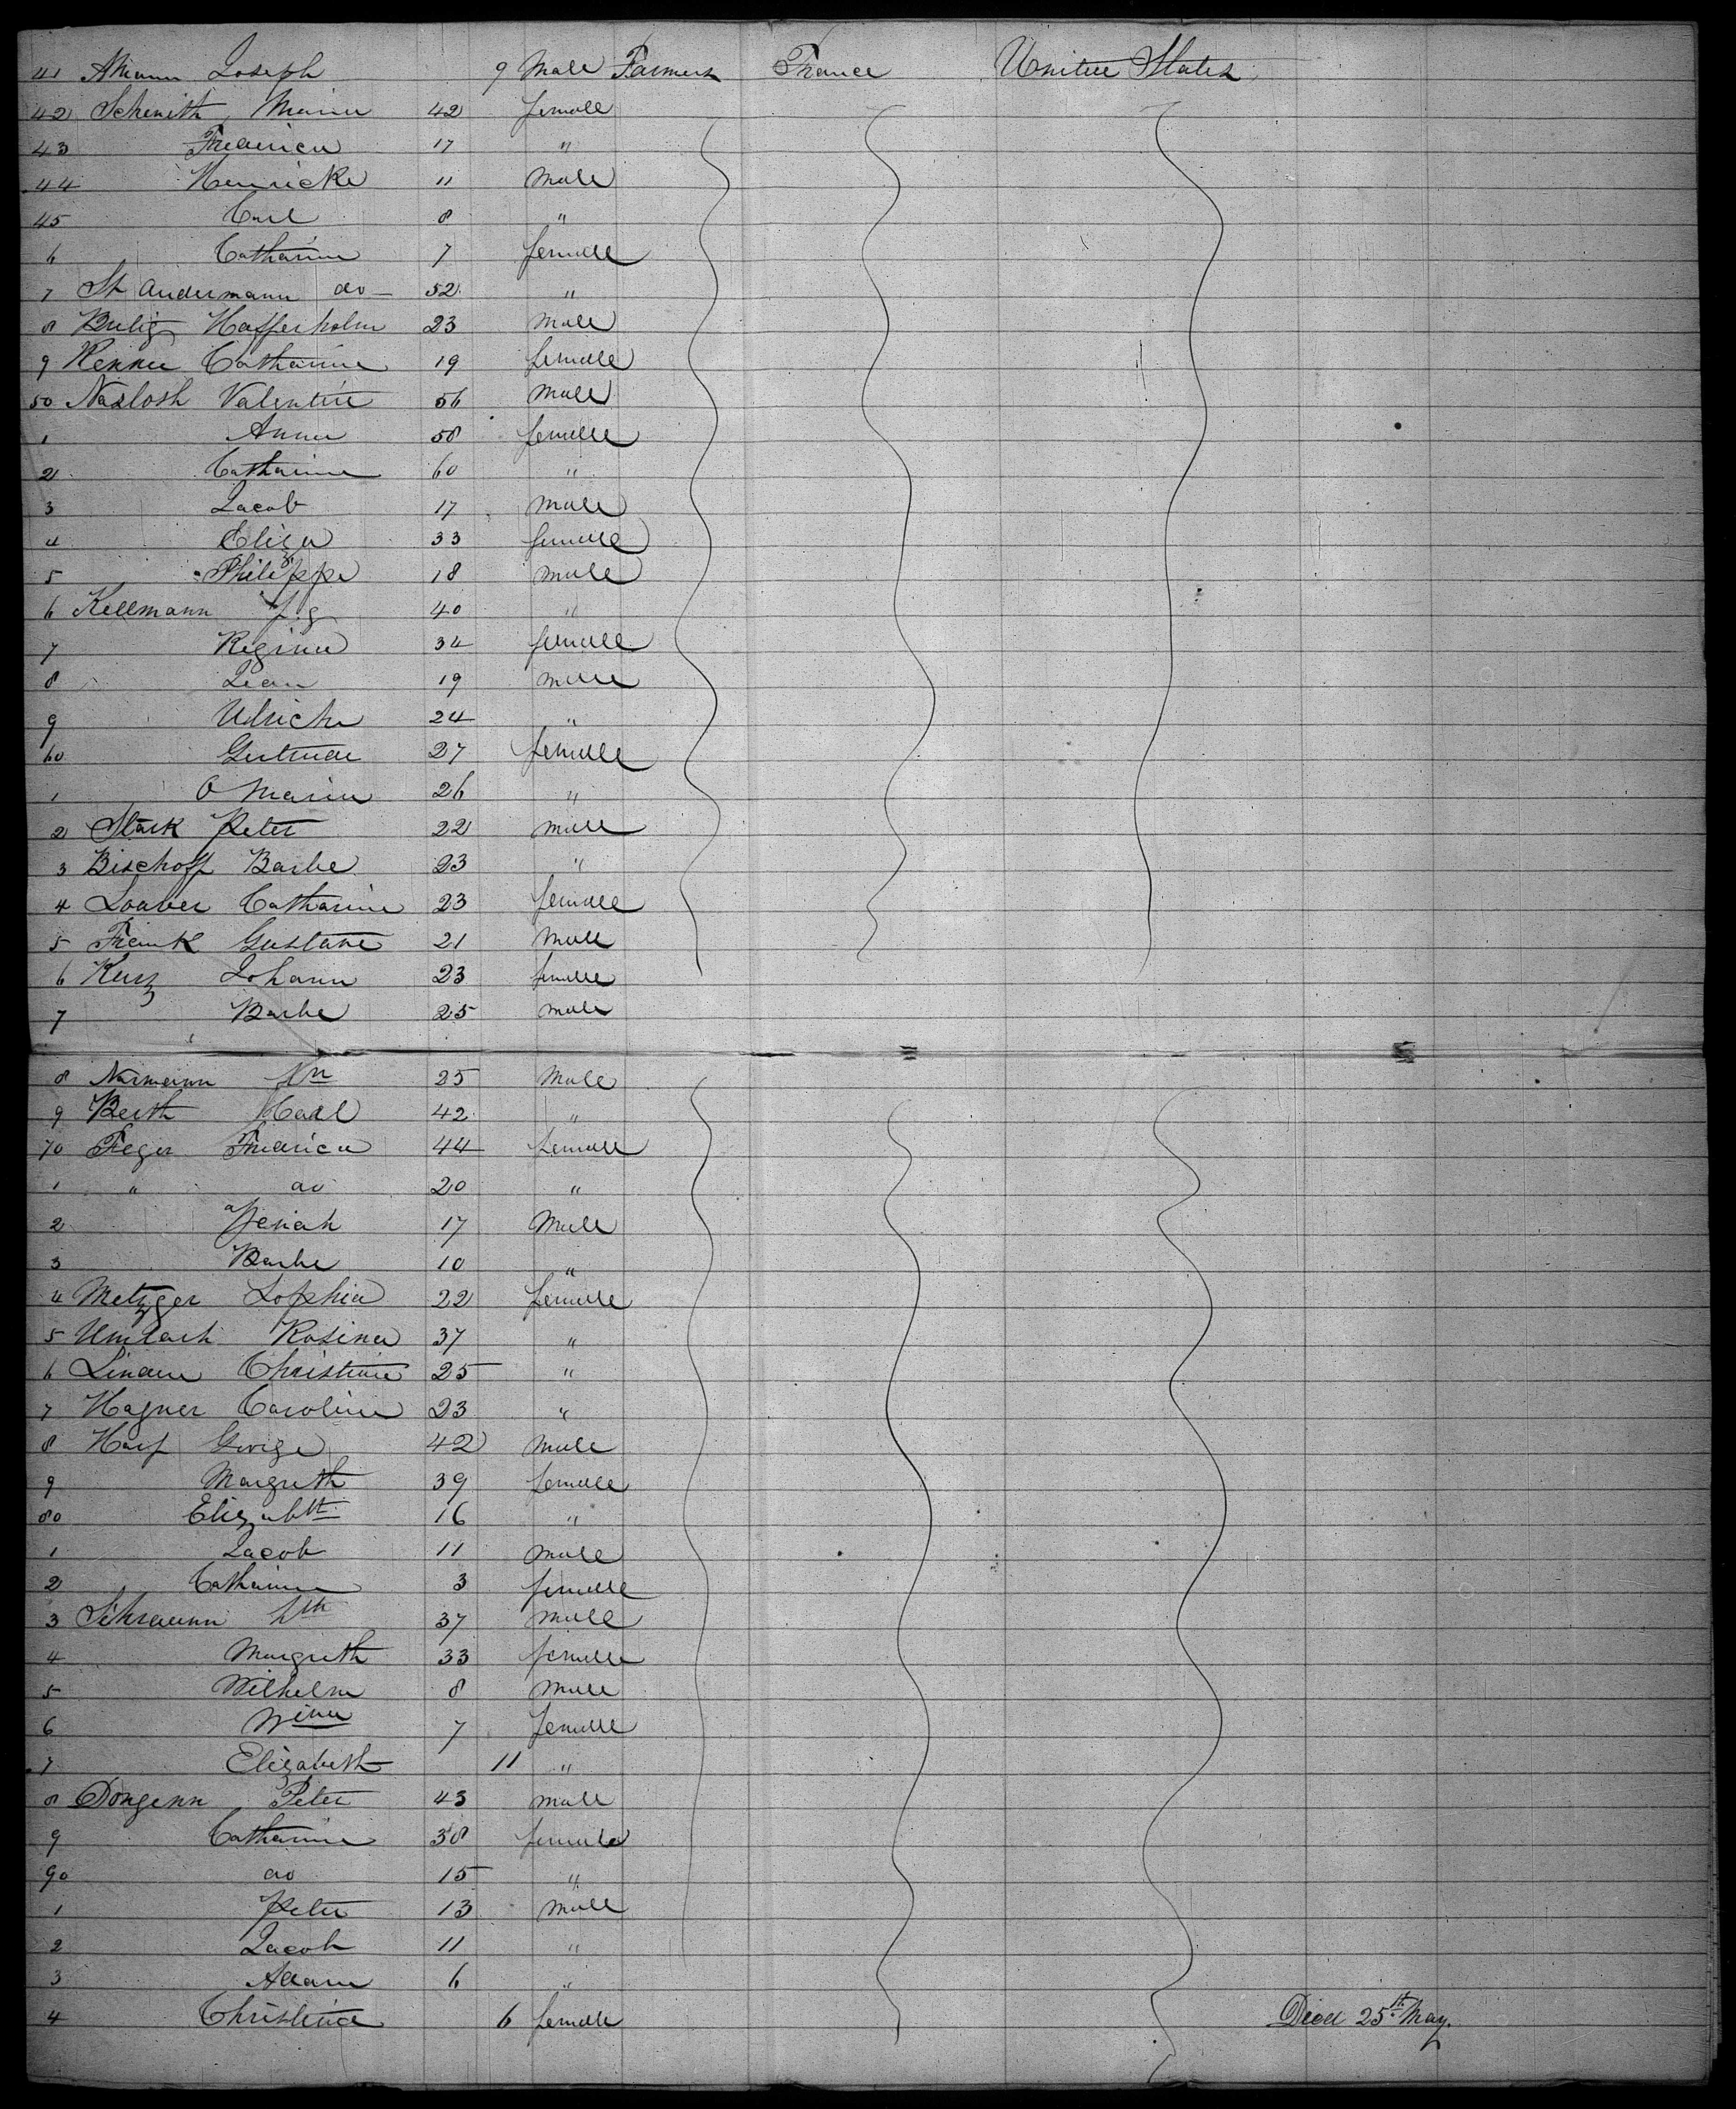 41 Amann Joseph 9 Male Farmers France United States
42 Schmith Maria 42 female
43 Frederica 17 "
44 Henricke 11 male
45 Carl 8 "
6 Catharine 7 female
7 St Andermann do 52 "
8 Hafferholm 23 male
9 Renner Catharine 19 female
50 Naslosh Valentin 56 male
1 Anna 58 female
2 Catharine 60 "
3 Jacob 17 male
4 Eliza 33 female
5 Philippe 18 male
6 Kellmann J. g 40 "
7 Regina 34 female
8 Jean 19 male
9 Ulrich 24 "
60 Gertrude 27 female
1 A Maria 26 "
2 Stark Peter 22 male
3 Bischoff Barbe 23 "
4 Lauber Catharine 23 female
5 Frank Gustave 21 male
6 Kurz Johann 23 female
7 Barbe 25 male
8 Narmann 25 male
9 Berth Carl 42 "
70 Feger Frederica 44 female
1 " do 20 "
2 17 male
3 Barbe 10 "
4 Metzger Sophia 22 female
5 Umlach Rosina 37 "
6 Lindau Christine 25 "
7 Hagner Caroline 23 "
8 Harf George 42 male
9 Margreth 39 female
80 Elizabth 16 "
1 Jacob 11 male
2 Catharine 3 female
3 Schraunn 37 male
4 Margreth 33 female
5 Wilhelm 8 male
6 Wina 7 female
7 Elizabeth 11 "
8 Dongenn Peter 43 male
9 Catharine 38 female
90 do 15 "
1 Peter 13 male
2 Jacob 11 "
3 Adam 6 "
4 Christina 6 female Died 25th May.